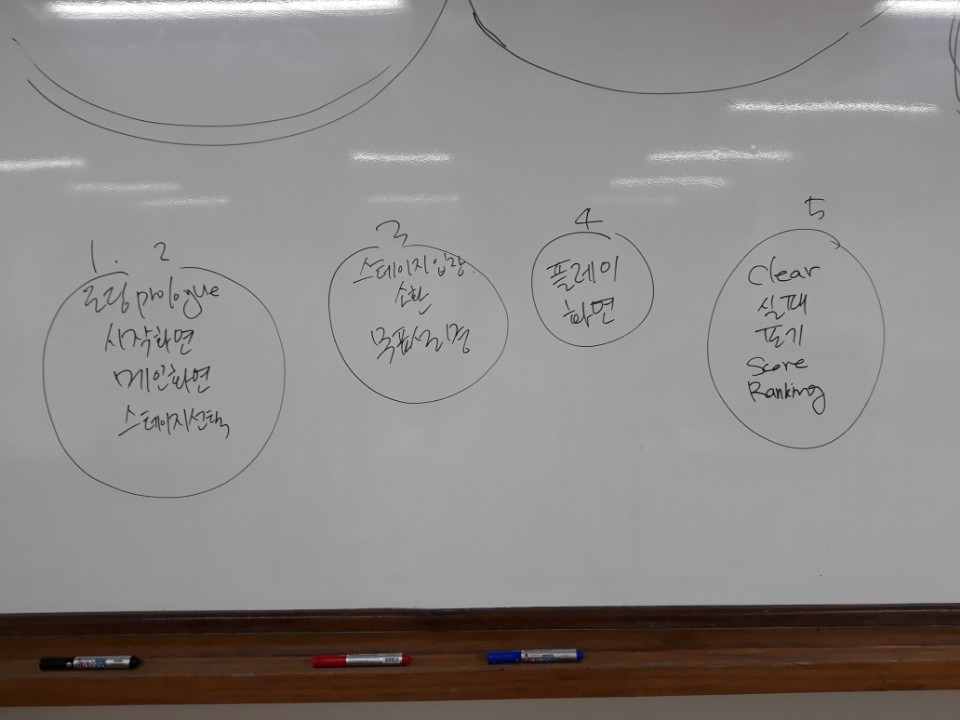 1. 2
로딩 prologue
시작화면
메인화면
스테이지선택
3
스테이지입장
소환
목표설명
4
플레이
화면
5
Clear
실패
포기
Score
Ranking